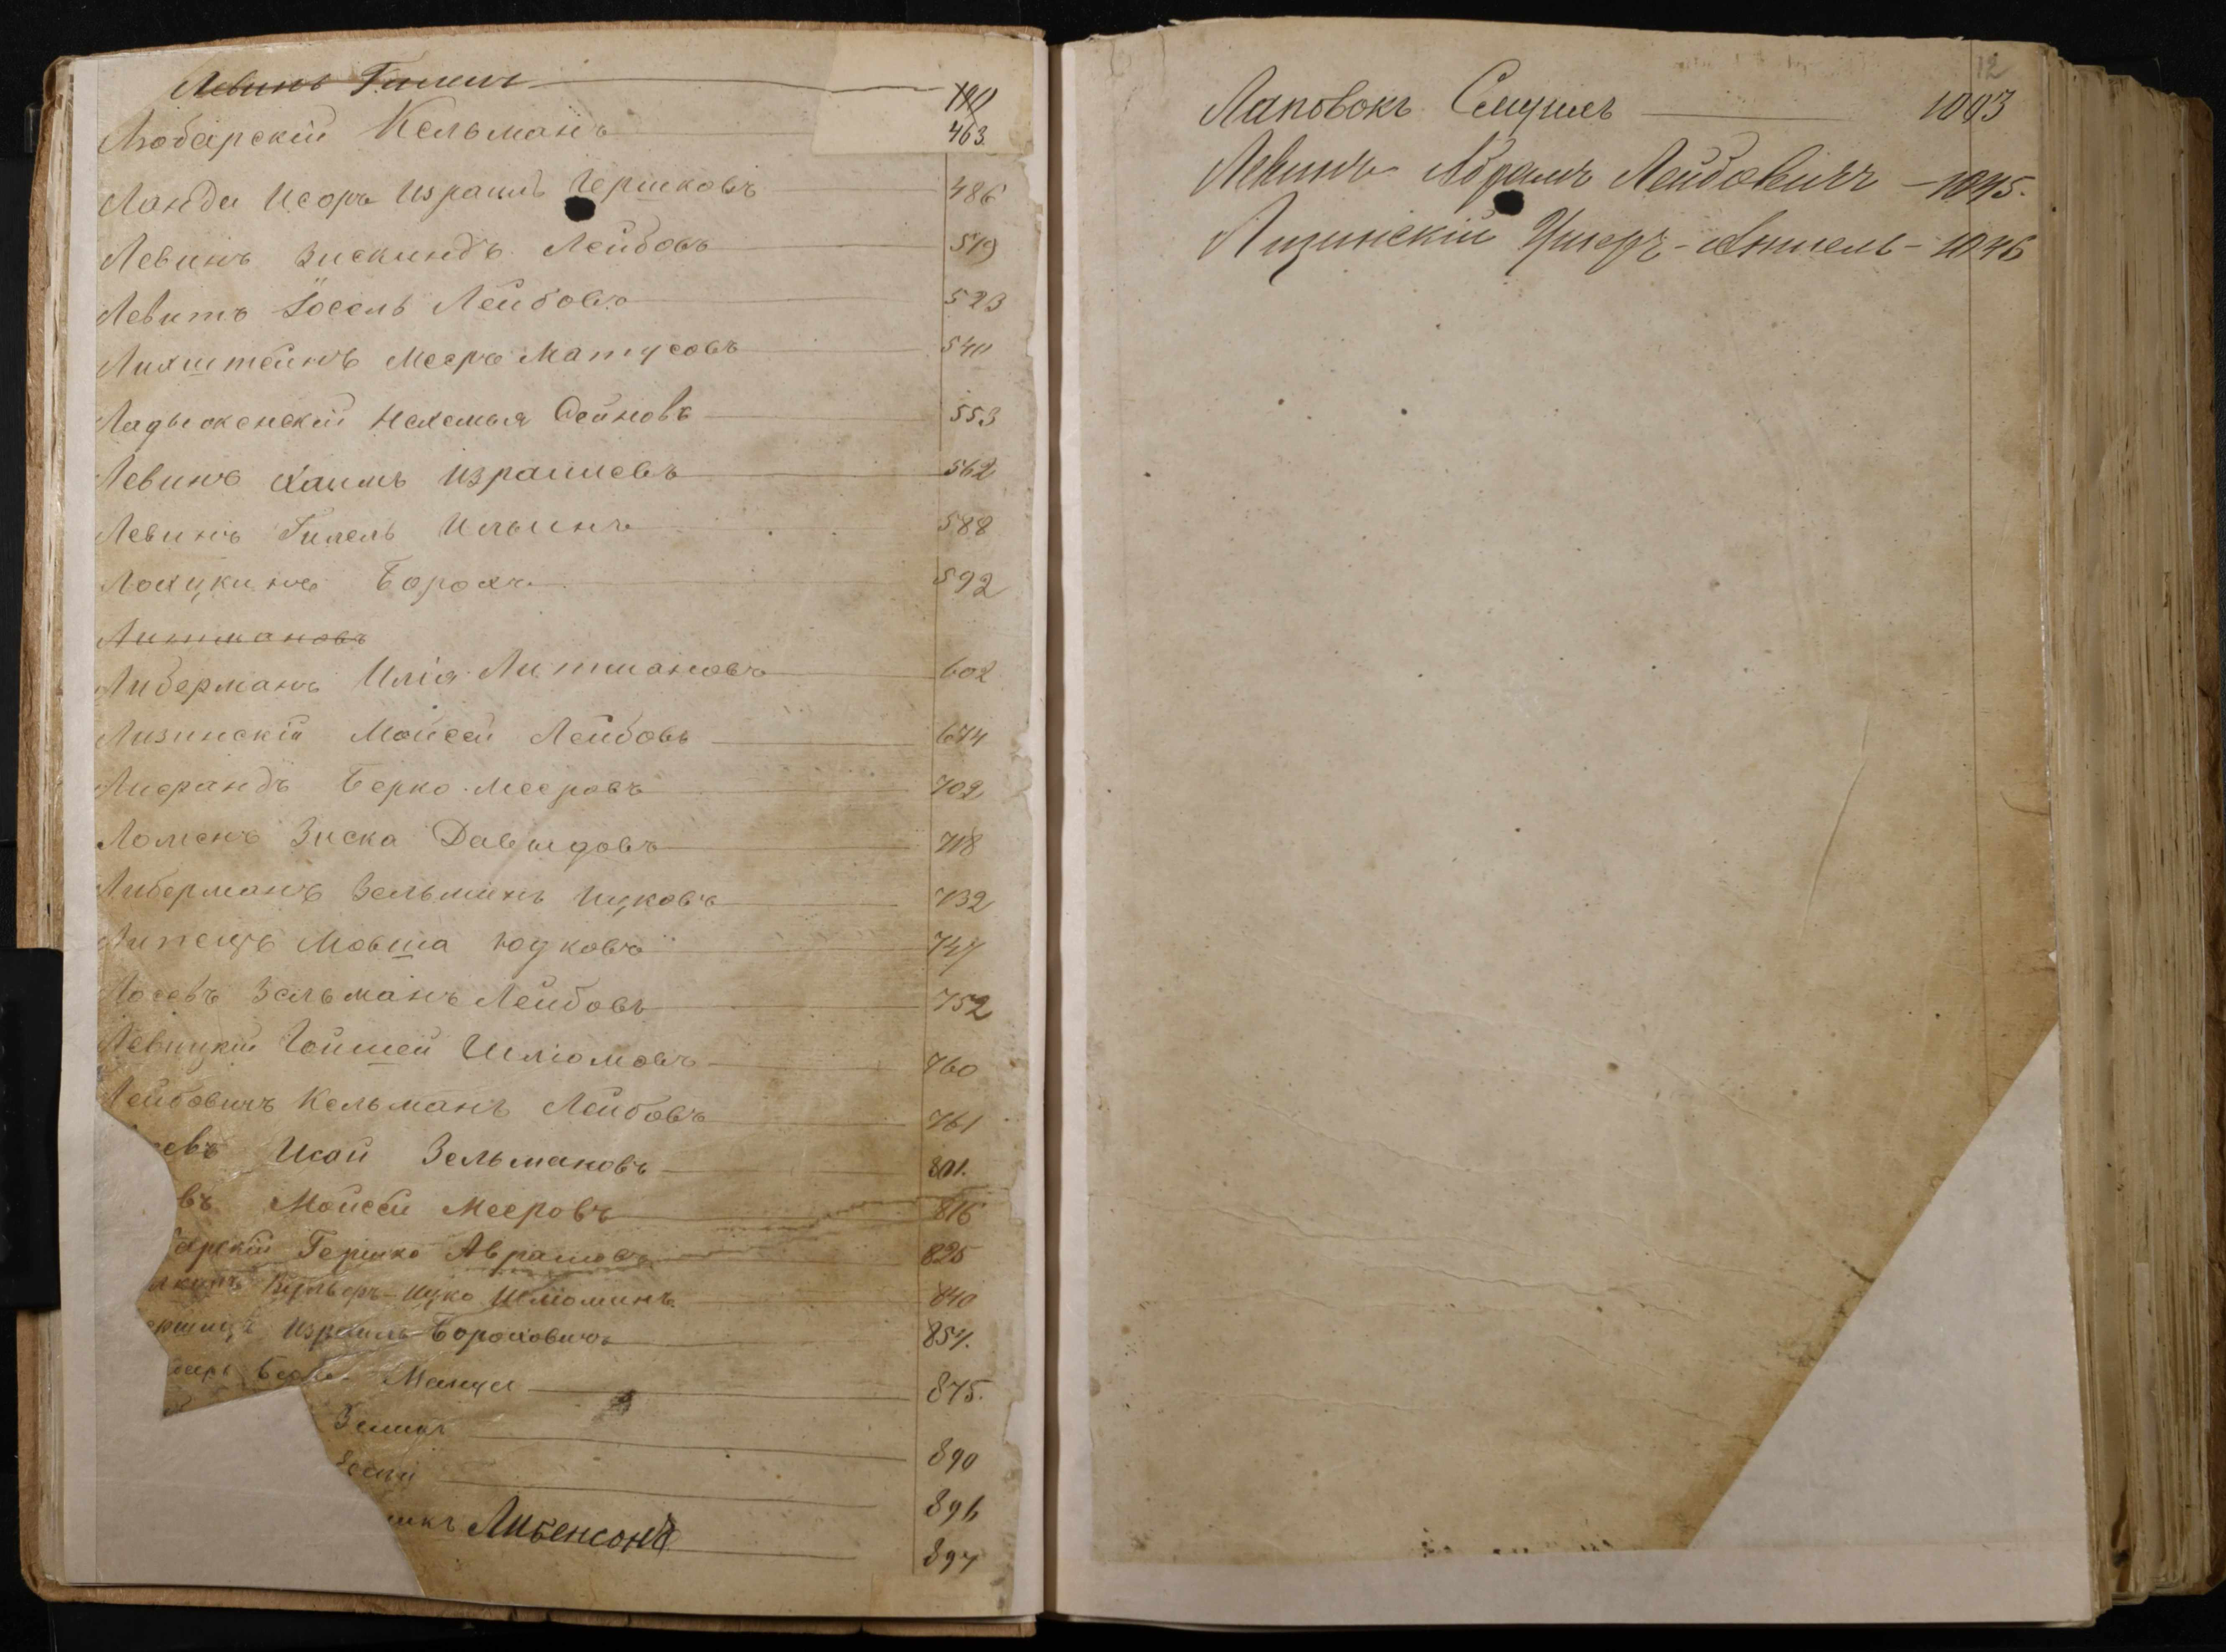 Левинъ Гилель 190
Любарскій Кельманъ 463
Ланда Исоръ Израиль Гершковъ 486
Левинъ Зискиндъ Лейбовъ 519
Левитъ Іосель Лейбовъ 523
Лихштейнъ Мееръ Матусовъ 540
Ладыженскій Нехемья 553
Левинъ Хаимъ Израилевъ 562
Левинъ Гилель Ильинъ 588
Лохцкинъ Борохъ 592
Литмановъ
Либерманъ Илія Литмановъ 602
Лизинскій Мойсей Лейбовъ 674
Лисрандъ Берко Мееровъ 702
Ломенъ Зиска Давыдовъ 718
Либерманъ Зельманъ Ицковъ 732
Липецъ Мовша Юдковъ 747
Лосевъ Зельманъ Лейбовъ 752
Левицкій Гойшей Шліомовъ 760
Лейбовичъ Кельманъ Лейбовъ 761
евъ Исай Зельмановъ 801.
въ Мойсей Мееровъ 816
арскій Гершко Аврамовъ 825
Вульфъ-Ицко Шліоминъ 840
Израиль Бороховичъ 854.
Манус 875.
890
896
Либенсонъ
897
12
Лаповокъ Самуилъ 1003
Левинъ Абрамъ Лейбовичъ - 1045.
Лизинскій Ушеръ-Аншель - 1046